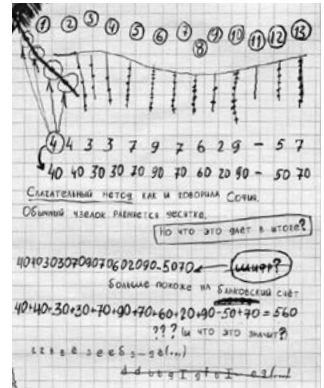 1 2 3 4 5 6 7 8 9 10 11 12 13
4 4 3 3 7 9 7 6 2 9 - 5 7
40 40 30 30 70 90 70 60 20 90 - 50 70
Слагательный метод как и говорила София.
Обычный узелок равняется десятке.
Но что это дает в итоге?
40403030709070602090-5070 шифр?
больше похоже на банковский счёт
40+40+30+30+70+90+70+60+20+90-50+70=560
??? (и что это значит?)